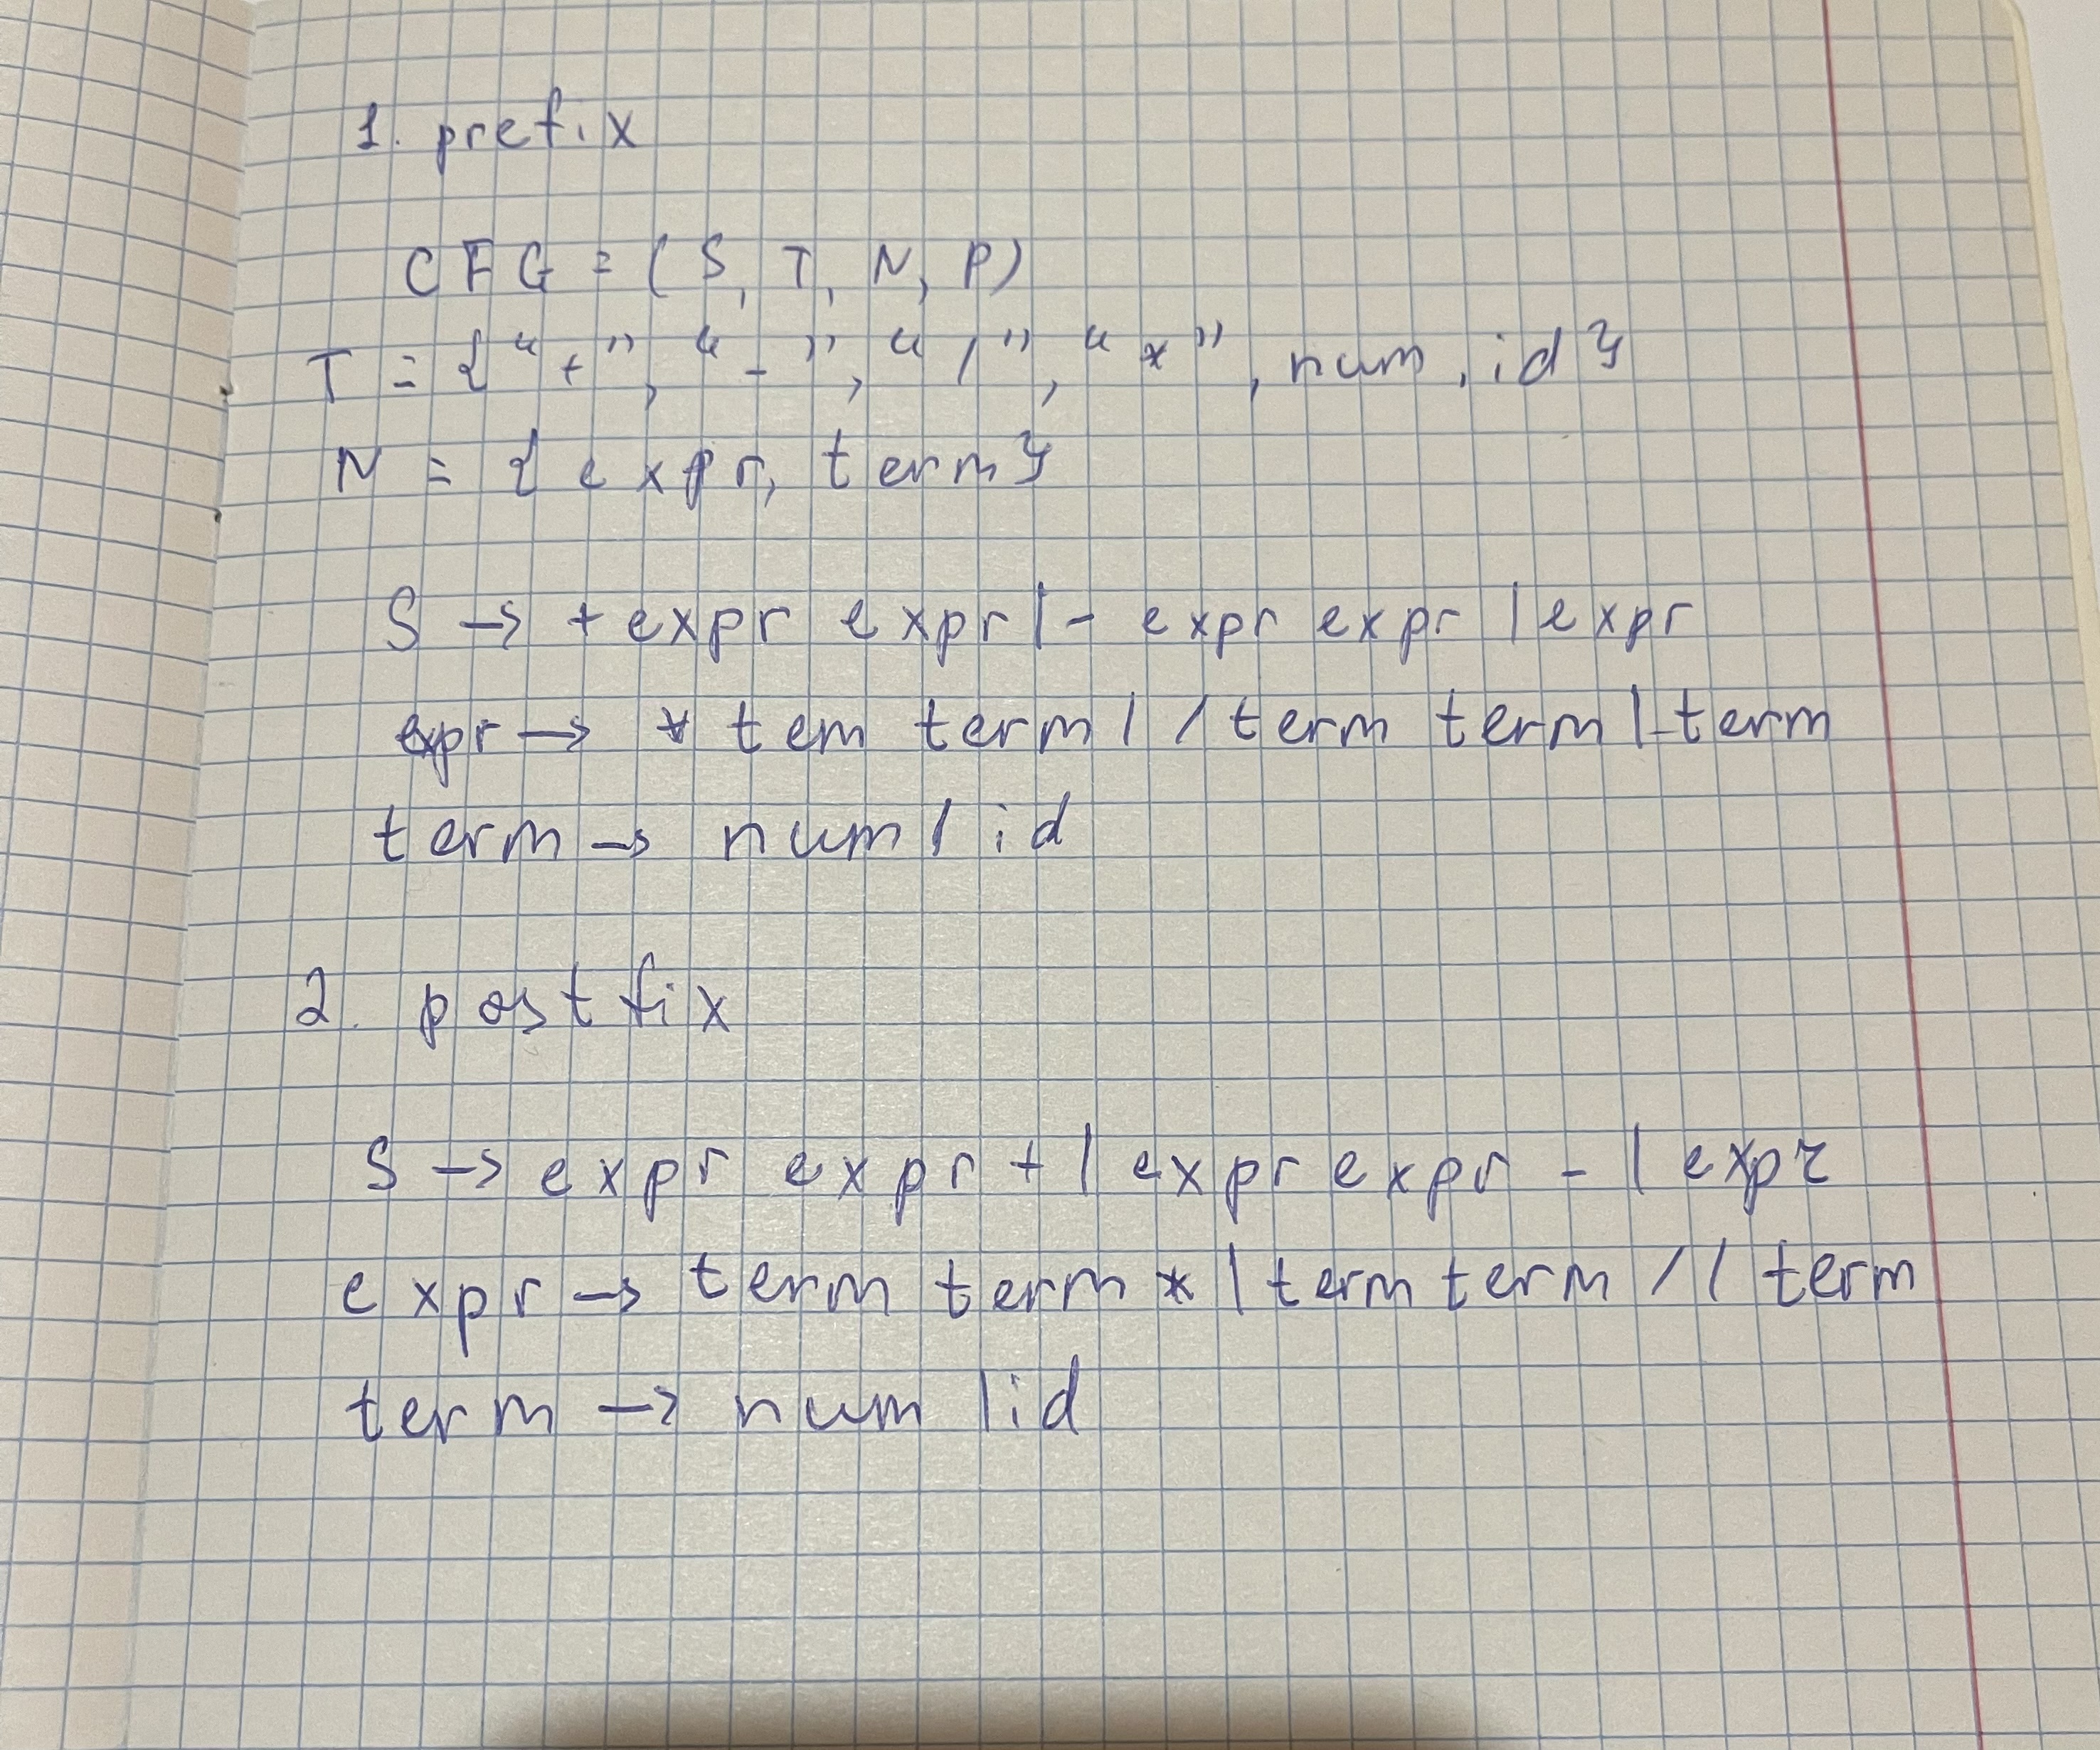 1. prefix
CFG = (S, T, N, P)
T = {“+”, “-”, “/”, “*”, num, id}
N = {expr, term}
S → + expr expr | - expr expr | expr
expr → * tem term | / term term | term
term → num | id
2. postfix
S → expr expr + | expr expr - | expr
expr → term term * | term term / | term
term → num | id